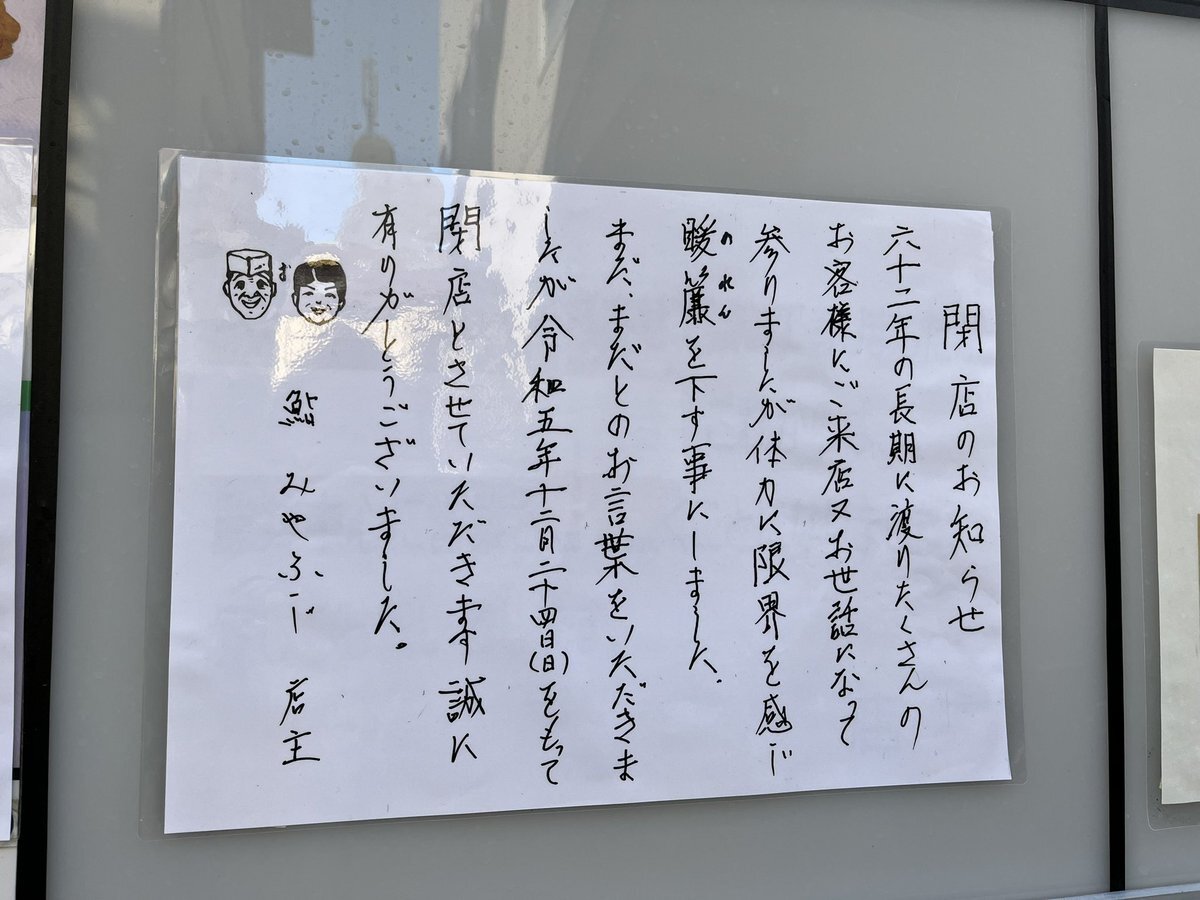 閉店のお知らせ
六十二年の長期に渡りたくさんの
お客様にご来店又お世話になって
参りましたが体力に限界を感じ
暖簾を下す事にしました。
のれん
まだ、まだとのお言葉をいただきま
したが令和五年十二月二十四日(日)をもって
閉店とさせていただきます誠に
有りがとうございました。
鮨 みやふじ 店主